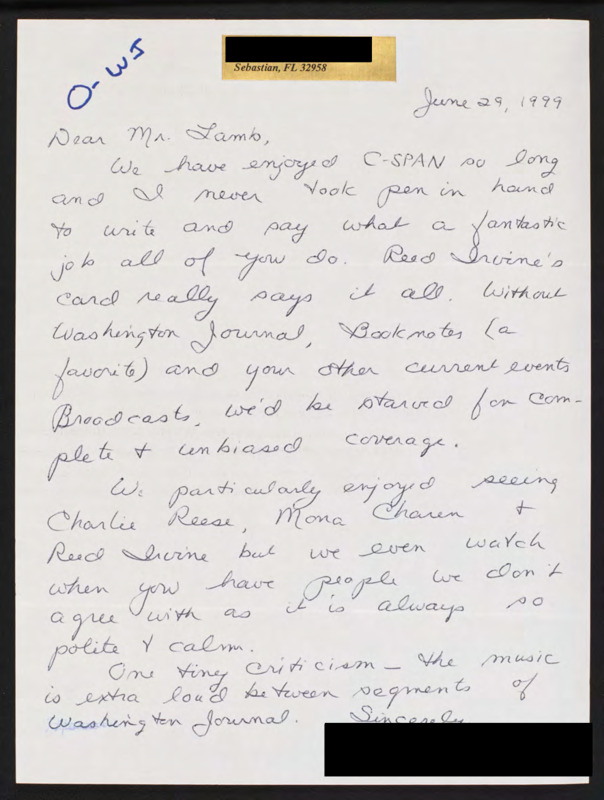 O-WJ
Sebastian, FL 32958
June 29, 1999
Dear Mr. Lamb,
We have enjoyed C-SPAN so long
and I never took pen in hand
to write and say what a fantastic
job all of you do. Reed Irvine's
card really says it all. Without
Washington Journal, Booknotes (a
favorite) and your other current events
Broadcasts, we'd be starved for com-
plete & unbiased coverage.
We particularly enjoyed seeing
Charlie Reese, Mona Charen &
Reed Irvine but we even watch
when you have people we don't
agree with as it is always so
polite & calm.
One tiny criticism - the music
is extra loud between segments of
Washington Journal. Sincerely